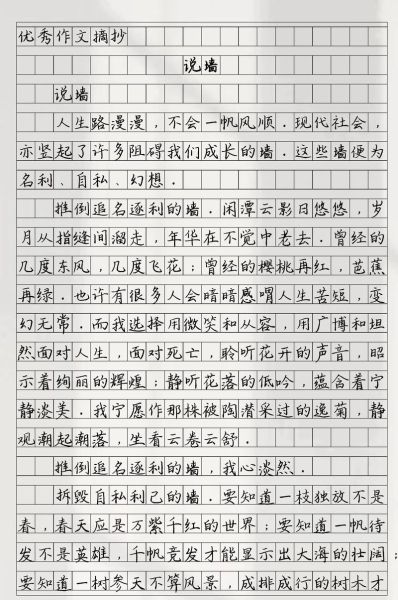 优秀作文摘抄
说墙
说墙
人生路漫漫，不会一帆风顺．现代社会，
亦竖起了许多阻碍我们成长的墙．这些墙便为
名利、自私、幻想．
推倒追名逐利的墙．闲潭云影日悠悠，岁
月从指缝间溜走，年华在不觉中老去．曾经的
几度东风，几度飞花；曾经的樱桃再红，芭蕉
再绿．也许有很多人会暗暗感喟人生苦短，变
幻无常．而我选择用微笑和从容，用广博和坦
然面对人生，面对死亡，聆听花开的声音，昭
示着绚丽的辉煌；静听花落的低吟，蕴含着宁
静淡美．我宁愿作那株被陶潜采过的逸菊，静
观潮起潮落，坐看云卷云舒．
推倒追名逐利的墙，我心淡然．
拆毁自私利己的墙．要知道一枝独放不是
春，春天应是万紫千红的世界；要知道一帆待
发不是英雄，千帆竞发才能显示出大海的壮阔；
要知道一树参天不算风景，成排成行的树木才